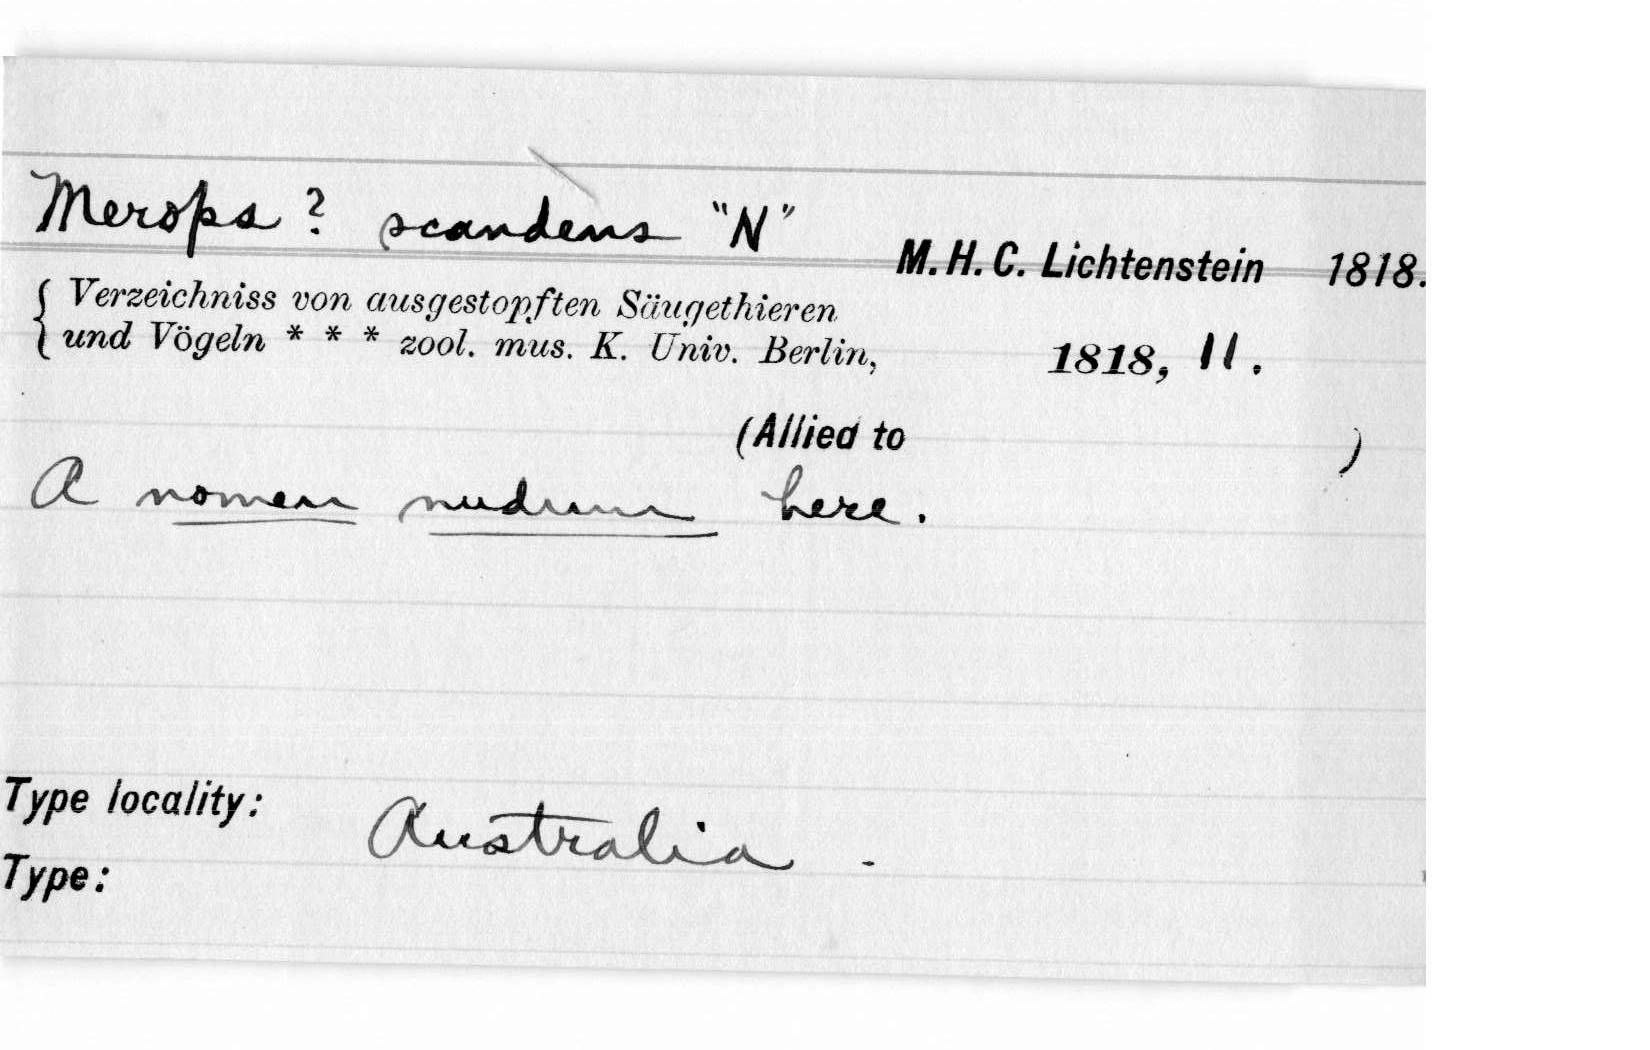 Merops ? scandens "N"
M. H. C. Lichtenstein 1818.
{ Verzeichniss von ausgestopften Säugethieren
und Vögeln * * * zool. mus. K. Univ. Berlin, 1818, 11.
(Allied to )
A nomen nudum here.
Type locality: Australia -
Type: